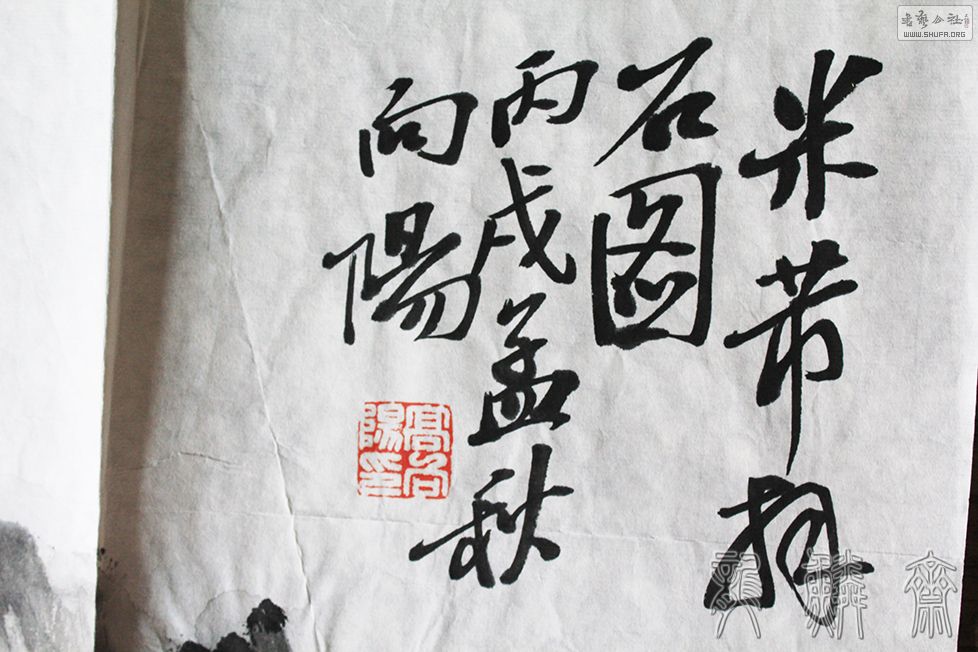 米芾拜
石图
丙戌孟秋
向陽
高向陽印
書藝公社
WWW.SHUFA.ORG
麟齋